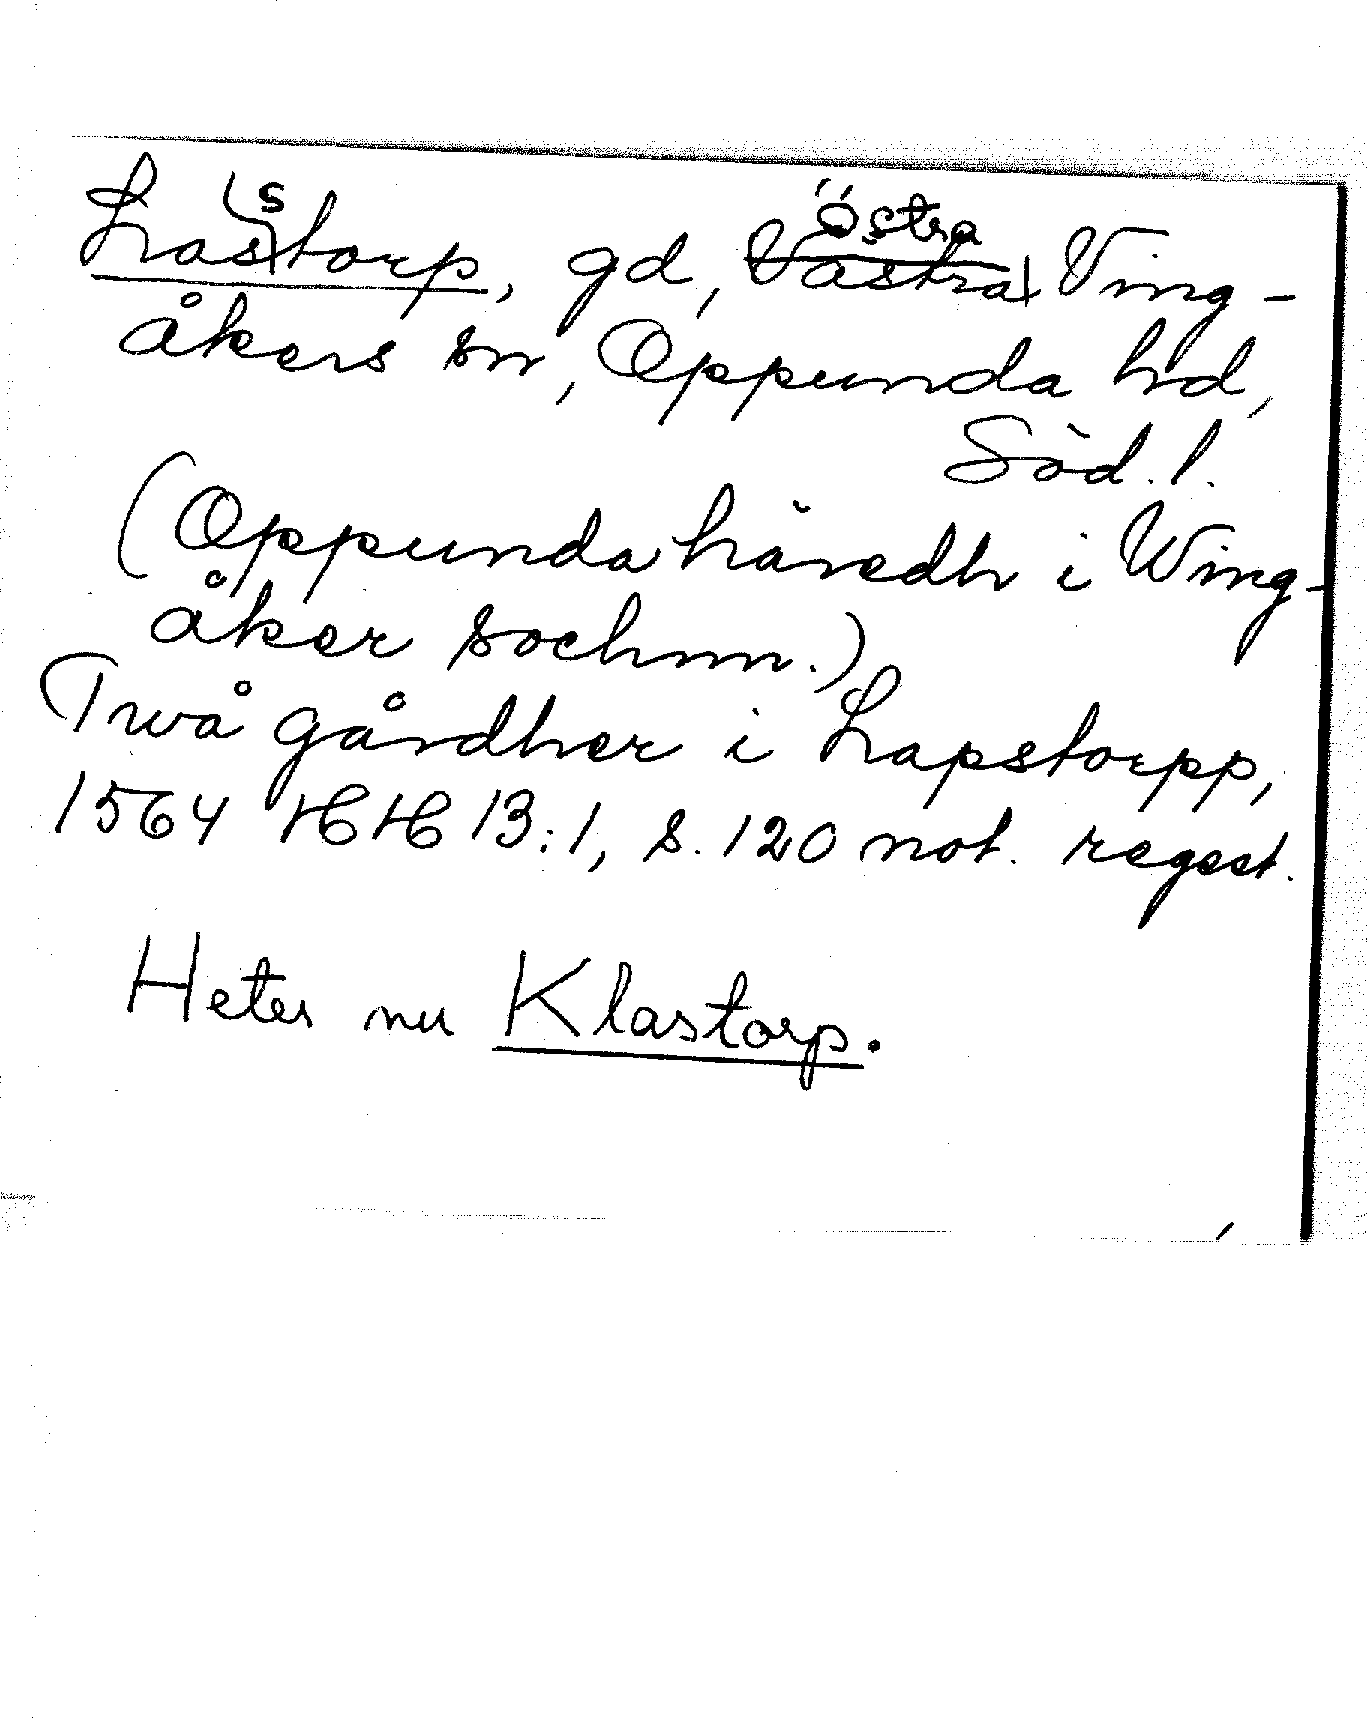 Lasstorp, gd, Västra Östra Ving-
åkers sn, Oppunda hd,
Söd. l.
(Oppunda häredh i Wing-
åker sochnn.)
Twå gårdher i Lapstorpp,
1564 HH 13:1, s. 120 not. regest.
Heter nu Klastorp.